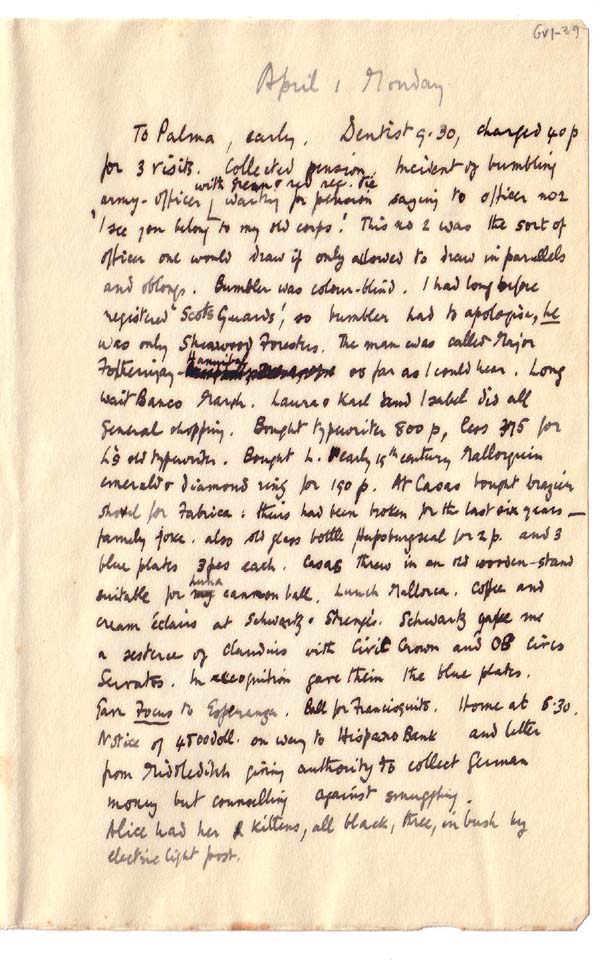 GVI-39
April 1 Monday.
To Palma, early. Dentist 9.30, charged 40 p
for 3 visits. Collected pension. Incident of bumbling
with green & red reg. tie
army-officer, waiting for pension saying to officer no 2
'I see you belong to my old corps'! This no 2 was the sort of
officer one would draw if only allowed to draw in parallels
and oblongs. Bumbler was colour-blind. I had long before
registered 'Scots Guards', so bumbler had to apologise, he
was only Sherwood Foresters. The man was called Major
Hannibal
as far as I could hear. Long
wait Banco March. Laura & Karl and Isabel did all
general shopping. Bought typewriter 800 p, less 375 for
L's old typewriter. Bought L. early 19th century Mallorquin
emerald & diamond ring for 190 p. At Casas bought brazier
shovel for Fabrica: theirs had been broken for the last six years —
family joke. also old glass bottle Hapsburg seal for 2 p. and 3
blue plates 3 pes each. Casas threw in an old wooden-stand
suitable for cannon ball. Lunch Mallorca. Coffee and
cream Eclairs at Schwartz & Strenge's. Schwartz gave me
a sesterce of Claudius with Civic Crown and OB Cives
Servatos. In recognition gave them the blue plates.
Gave Focus to Esperanza. Ball for Francisquita. Home at 6.30.
Notice of 4500 doll. on way to Hispano Bank and letter
from Middleditch giving authority to collect German
money but counselling against smuggling.
Alice had her kittens, all black, three, in bush by
electric light post.